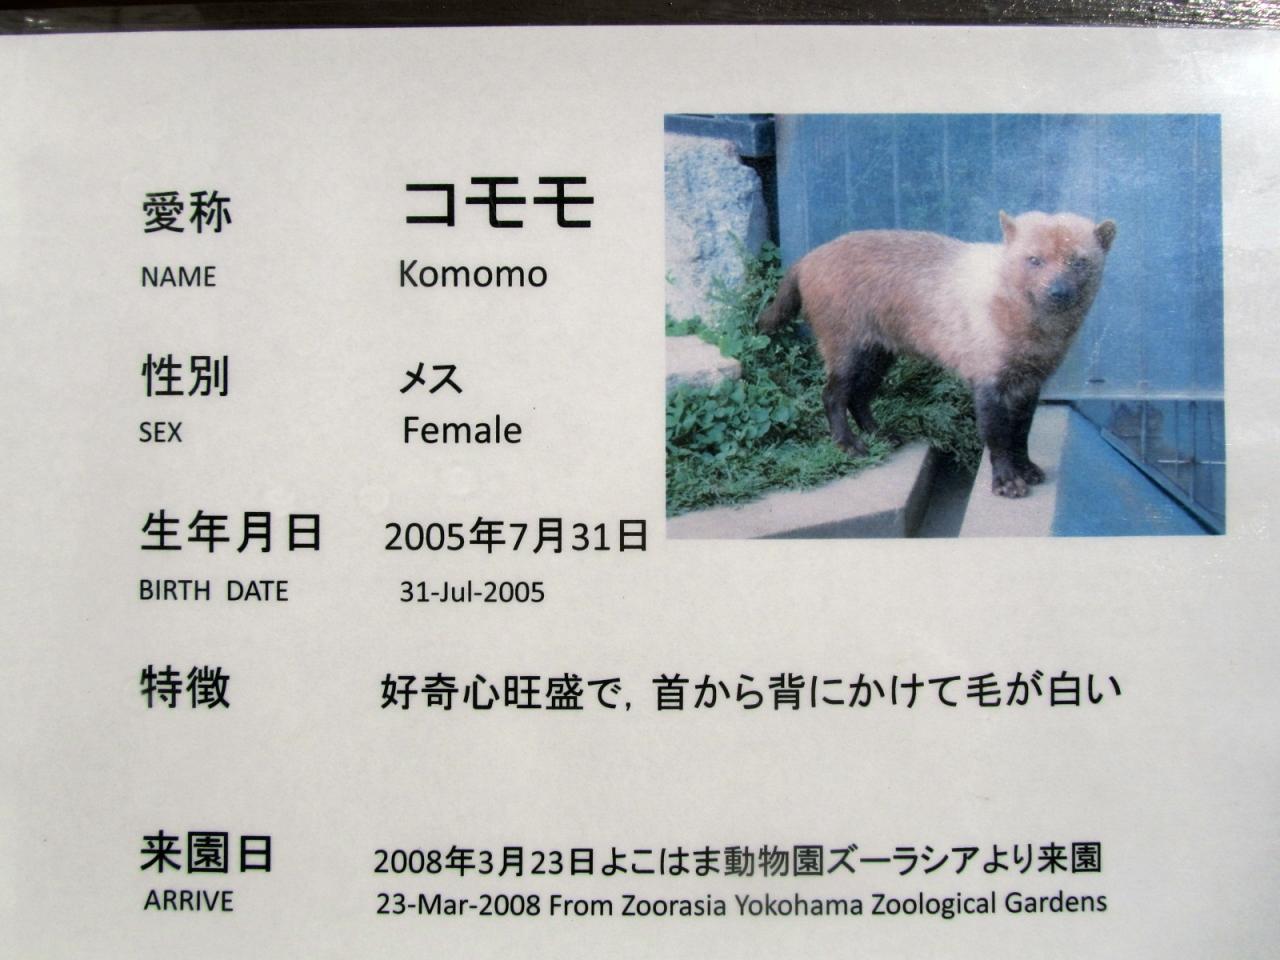 愛称 コモモ
NAME Komomo
性別 メス
SEX Female
生年月日 2005年7月31日
BIRTH DATE 31-Jul-2005
特徴 好奇心旺盛で，首から背にかけて毛が白い
来園日 2008年3月23日よこはま動物園ズーラシアより来園
ARRIVE 23-Mar-2008 From Zoorasia Yokohama Zoological Gardens